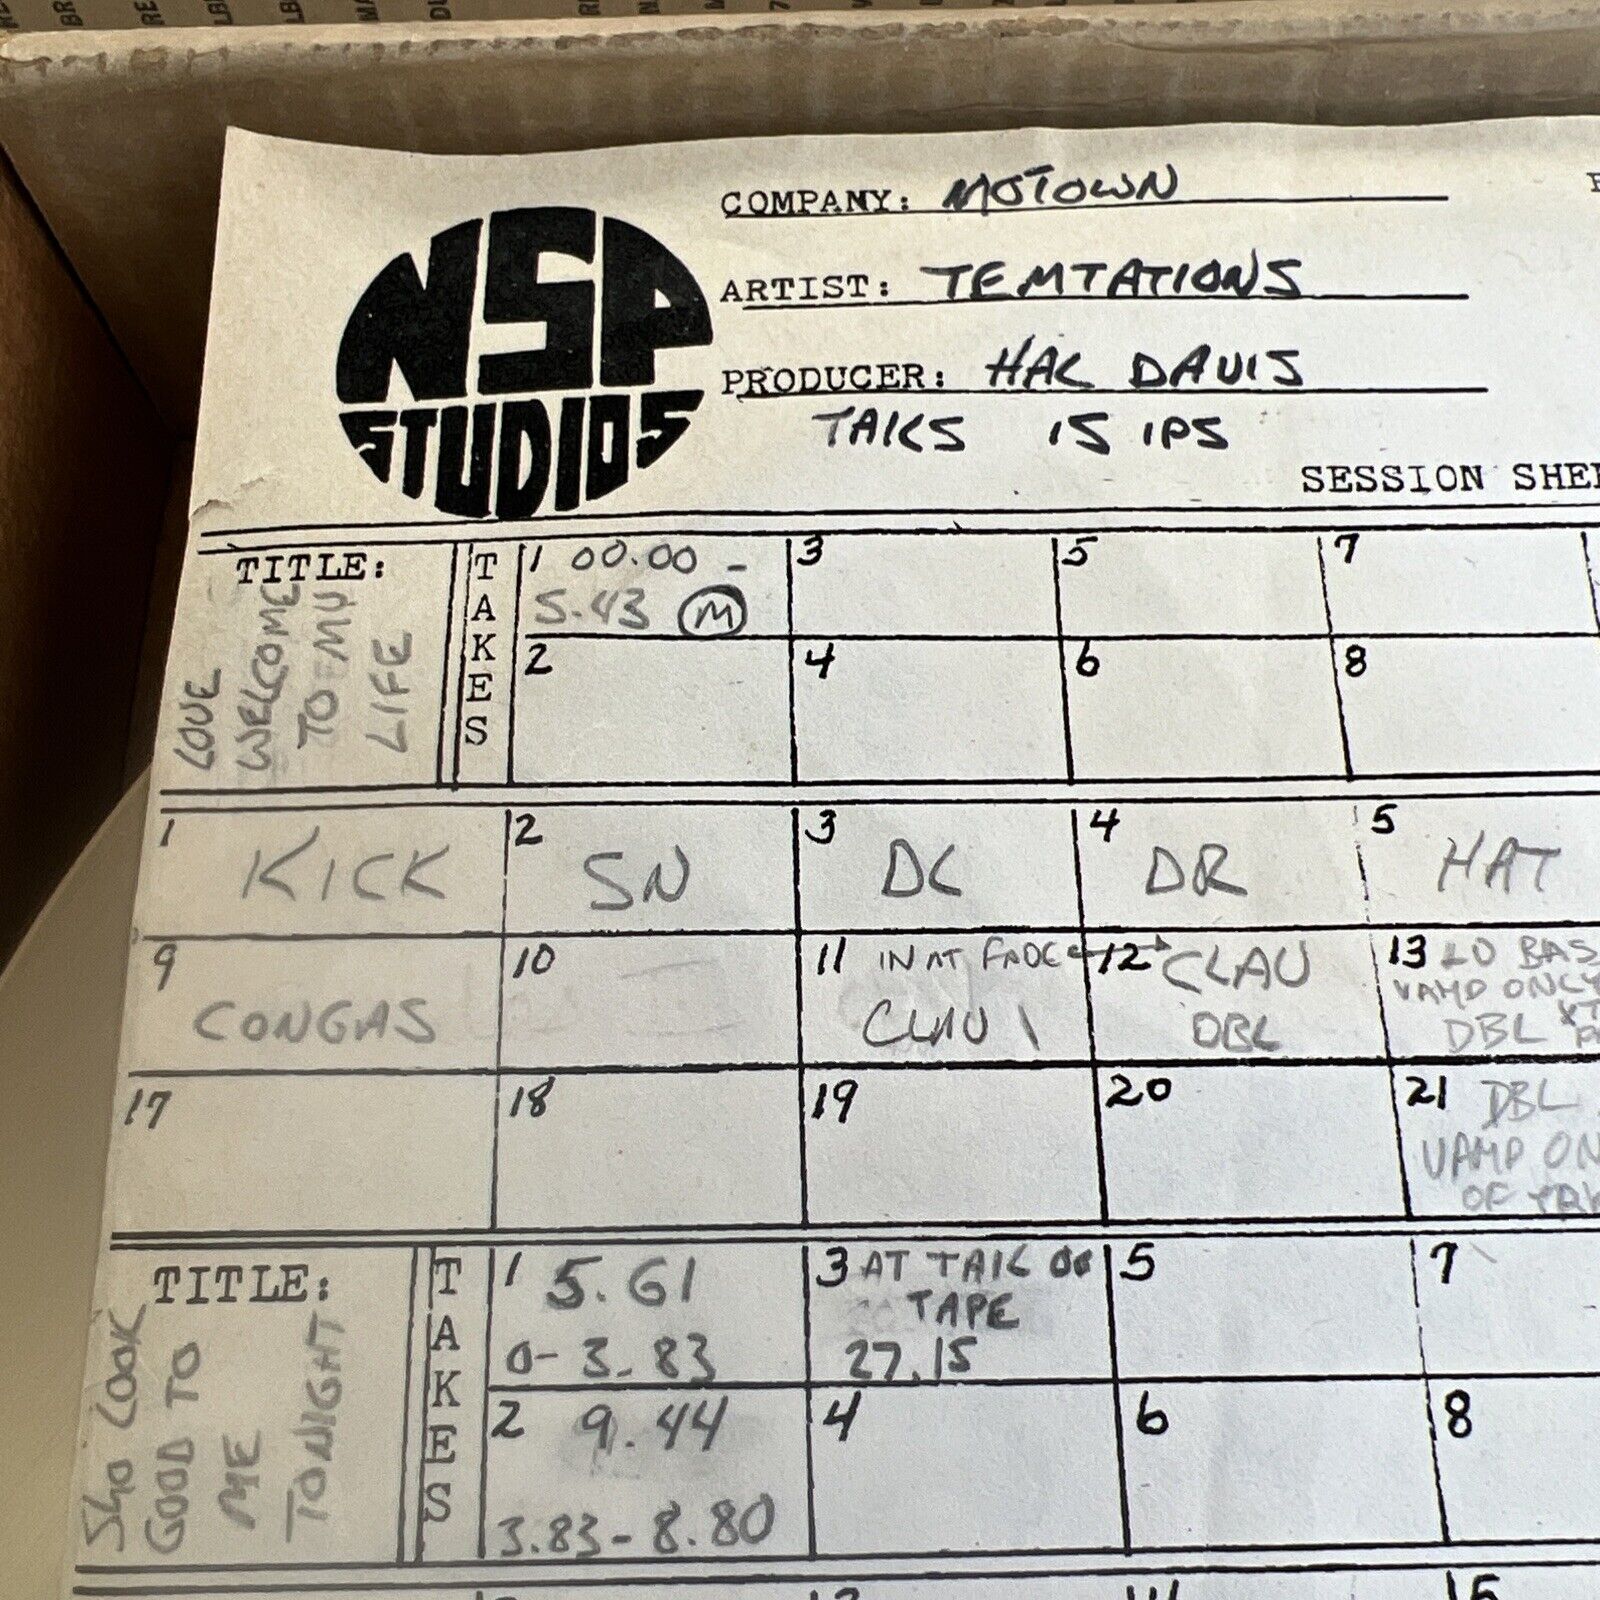 NSP
STUDIOS
COMPANY: MOTOWN
ARTIST: TEMTATIONS
PRODUCER: HAL DAVIS
TAILS 15 IPS
SESSION SHE
TITLE:
LOVE
WELCOME
TO MY
LIFE
TAKES
1 00.00 -
5.43 M
2
3
4
5
6
7
8
1 KICK
2 SN
3 DL
4 DR
5 HAT
9 CONGAS
10
11 IN AT FADE
CLAV 1
12 CLAV
DBL
13 LD BAS
VAMP ONLY
DBL
17
18
19
20
21 DBL
VAMP ON
OF TRK
TITLE:
SHO LOOK
GOOD TO
ME
TONIGHT
TAKES
1 5.61
0-3.83
2 9.44
3.83-8.80
3 AT TAIL OF
TAPE
27.15
4
5
6
7
8
15